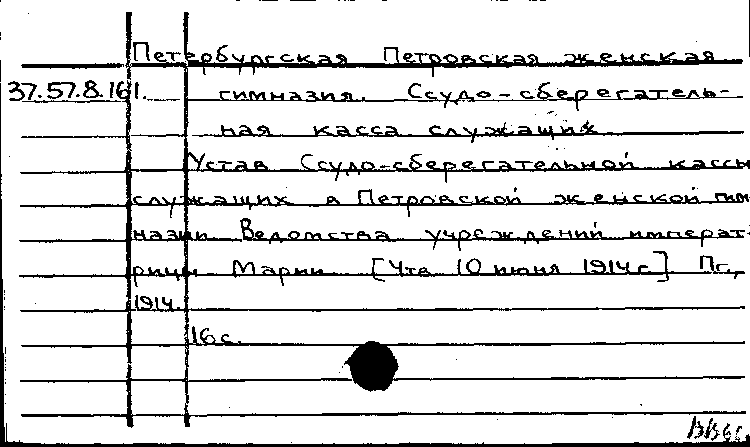 Петербургская Петровская женская
37.57.8.161. гимназия. Ссудо-сберегатель-
ная касса служащих
Устав Ссудо-сберегательной кассы
служащих в Петровской женской гим
назии Ведомства учреждений императ-
рицы Марии [Утв 10 июня 1914 г] Пг.,
1914.
16 с.